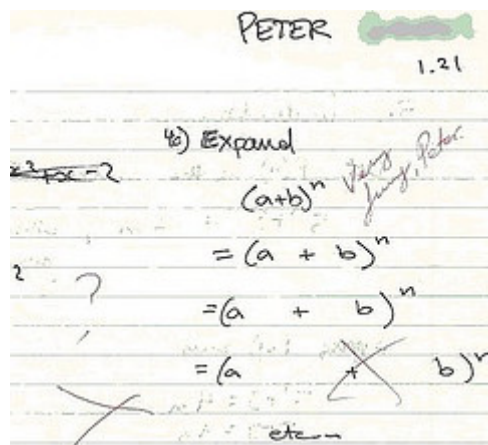 PETER
1.21
4b) Expand
(a+b)ⁿ
Very funny, Peter.
= (a + b)ⁿ
=(a + b)ⁿ
= (a + b)ⁿ
etc...
- 2
2
?